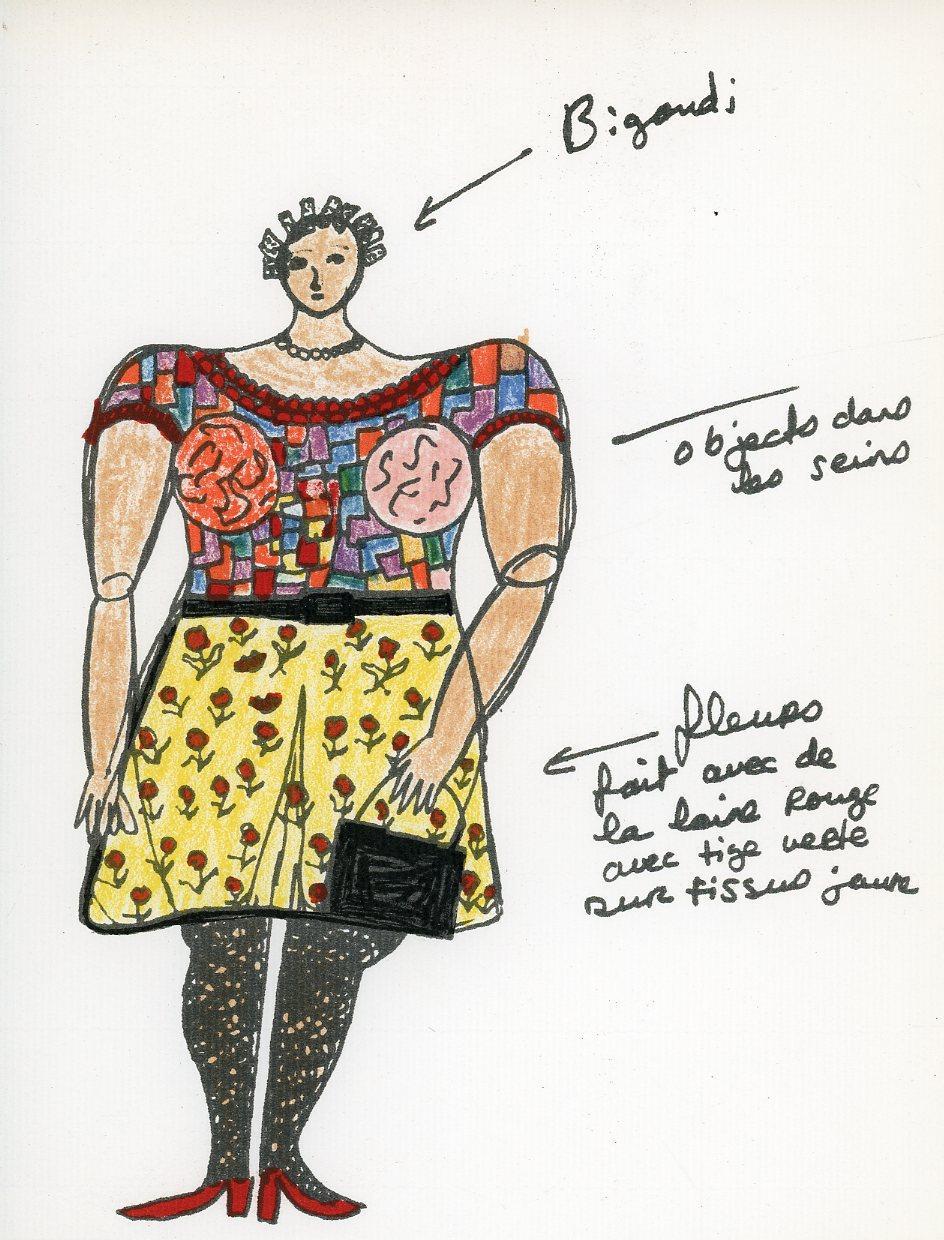 Bigoudi
objects dans
les seins
fleurs
fait avec de
la laine rouge
avec tige verte
sur tissus jaune